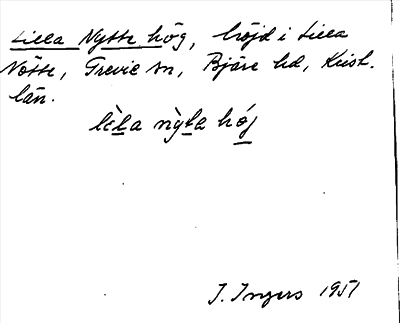 Lilla Nytte hög, höjd i Lilla
Nötte, Grevie sn, Bjäre hd, Krist.
län.
lìla nỳta hó̱j
I. Ingers 1951